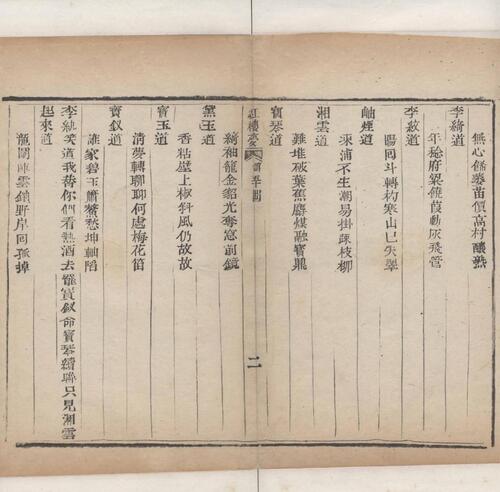 無心餙萎苗價高村釀熟
李綺道
年稔府粱饒葭動灰飛管
李紋道
陽囘斗轉杓寒山已失翠
岫煙道
凍浦不生潮易掛疎枝柳
湘雲道
難堆破葉蕉麝煤融寶鼎
寶琴道
紅樓夢 第五十囘 二
綺袖籠金貂光奪窓前鏡
黛玉道
香粘壁上椒斜風仍故故
寶玉道
清夢轉聊聊何處梅花笛
寶釵道
誰家碧玉簫鰲愁坤軸陷
李紈笑道我替你們看熱酒去罷寶釵命寶琴續聯只見湘雲
起來道
龍鬭陣雲銷野岸囘孤棹